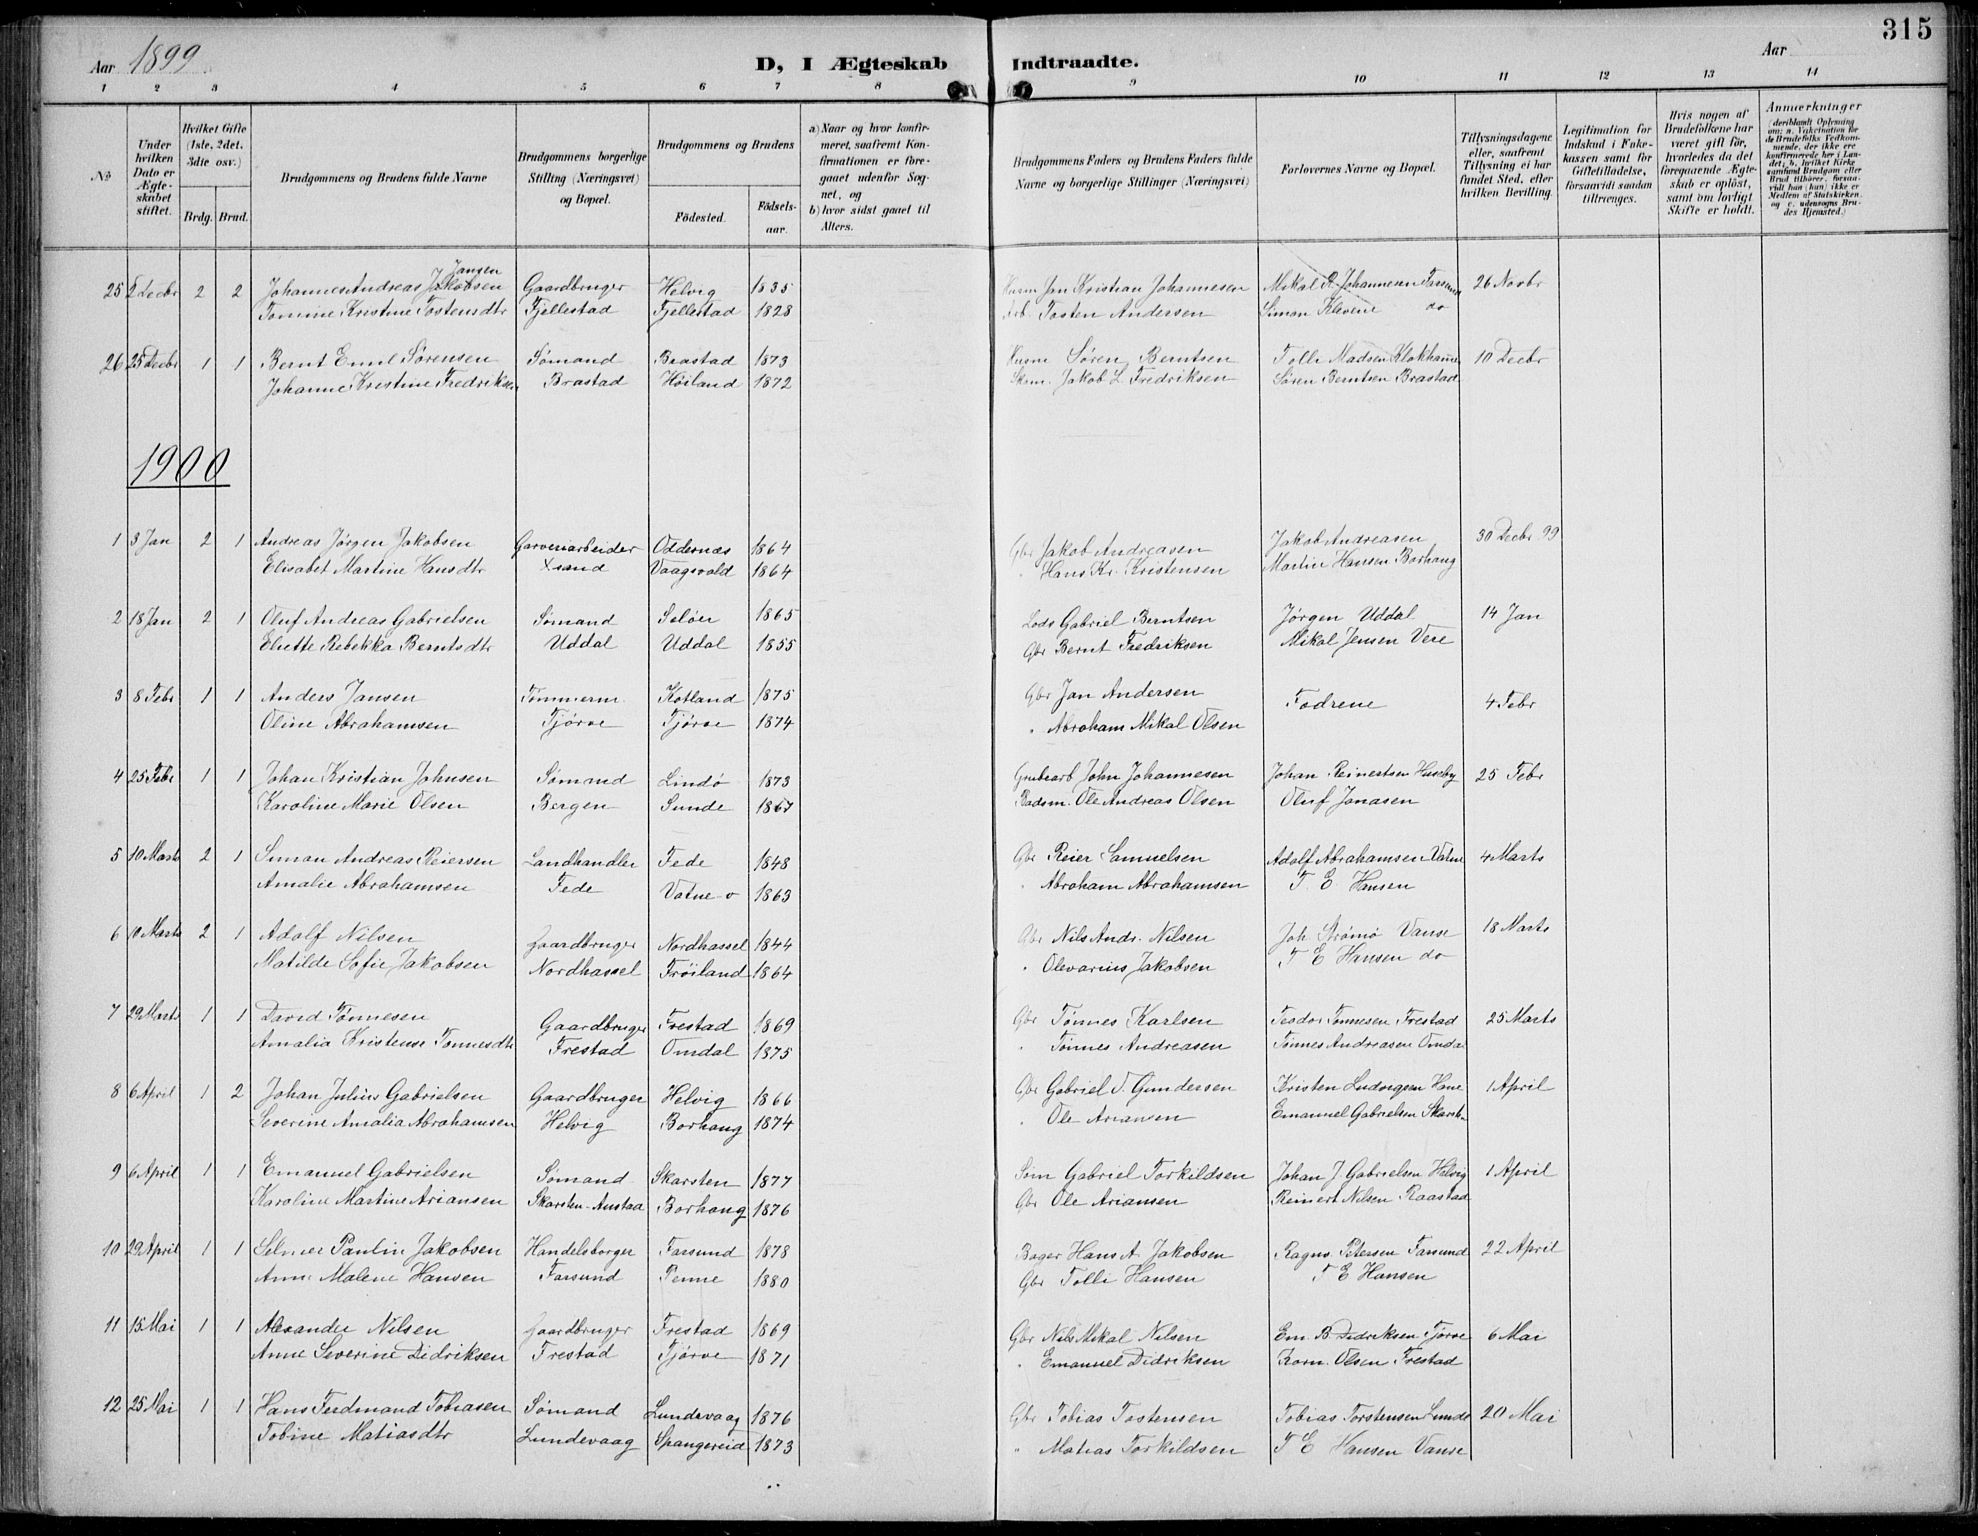 315
Aar 1899
D, I Ægteskab Indtraadte.
Aar
1 2 3 4 5 6 7 8 9 10 11 12 13 14
№
Under hvilken Dato er Ægteskabet stiftet.
Hvilket Gifte (1ste, 2det, 3die osv.)
Brdg. Brud.
Brudgommens og Brudens fulde Navne
Brudgommens borgerlige Stilling (Næringsvei) og Bopæl.
Brudgommens og Brudens
Fødested.
Fødselsaar.
a) Naar og hvor konfirmeret, saafremt Konfirmationen er foregaaet udenfor Sognet, og
b) hvor sidst gaaet til Alters.
Brudgommens Faders og Brudens Faders fulde Navne og borgerlige Stillinger (Næringsvei)
Forlovernes Navne og Bopæl.
Tillysningsdagene eller, saafremt Tillysning ei har fundet Sted, efter hvilken Bevilling.
Legitimation for Indskud i Enkekassen samt for Giftetilladelse, forsaavidt saadan tiltrænges.
Hvis nogen af Brudefolkene har været gift før, hvorledes da det foregaaende Ægteskab er opløst, samt om lovligt Skifte er holdt.
Anmærkninger
(deriblandt Oplysning om: a. Vakcination for de Brudefolks Vedkommende, der ikke ere konfirmerede her i Landet; b. hvilket Kirkesamfund Brudgom eller Brud tilhører, forsaavidt han (hun) ikke er Medlem af Statskirken, og c. udensogns Brudes Hjemsted.)
Jansen
25 2 Decbr 2 2 Johannes Andreas Jakobsen Gaardbruger Helvig 1835 Husm Jan Kristian Johannesen Mikal R Johannesen Farsund 26 Novbr
Tomine Kristine Tostensdtr Fjellestad Fjellestad 1828 Arb Tosten Andersen Simon Klevene do
26 25 Decbr 1 1 Bernt Emil Sørensen Sømand Brastad 1873 Husm Søren Berntsen Tolli Madsen Klokhamm 10 Decbr
Johanne Kristine Fredriksen Brastad Høiland 1872 Skom. Jakob L Fredriksen Søren Berntsen Brastad
1900
1 3 Jan 2 1 Andreas Jørgen Jakobsen Garveriarbeider Oddernæs 1864 Gbr Jakob Andreasen Jakob Andreasen 30 Decbr 99
Elisabet Martine Hansdtr Xsand Vaagsvold 1864 " Hans Kr. Kristensen Martin Hansen Borhaug
2 18 Jan 2 1 Oluf Andreas Gabrielsen Sømand Seløer 1865 Lods Gabriel Berntsen Jørgen Uddal 14 Jan
Elutte Rebekka Berntsdtr Uddal Uddal 1855 Gbr Bernt Fredriksen Mikal Jensen Vere
3 8 Febr 1 1 Anders Jansen Tømmerm Kotland 1875 Gbr Jan Andersen Fædrene 4 Febr
Oline Abrahamsen Tjørve Tjørve 1874 " Abraham Mikal Olsen
4 25 Febr 1 1 Johan Kristian Johnsen Sømand Lindø 1873 Grubearb John Johannesen Johan Reinertsen Huseby 25 Febr
Karoline Marie Olsen Bergen Sunde 1867 Badsm. Ole Andreas Olsen Oluf Jonasen
5 10 Marts 2 1 Simon Andreas Reiersen Landhandler Fede 1848 Gbr Reier Samuelsen Adolf Abrahamsen Vatne 4 Marts
Amalie Abrahamsen Fede Vatne ø 1863 " Abraham Abrahamsen T. E Hansen
6 10 Marts 2 1 Adolf Nilsen Gaardbruger Nordhassel 1844 Gbr Nils Andr. Nilsen Joh Strømø Vanse 18 Marts
Matilde Sofie Jakobsen Nordhassel Frøiland 1864 " Olevarius Jakobsen T E Hansen do
7 29 Marts 1 1 David Tønnesen Gaardbruger Frestad 1869 Gbr Tønnes Karlsen Teodor Tønnesen Frestad 25 Marts
Amalia Kristense Tønnesdtr Frestad Omdal 1875 " Tønnes Andreasen Tønnes Andreasen Omdal
8 6 April 1 2 Johan Julius Gabrielsen Gaardbruger Helvig 1866 Gbr Gabriel T. Gundersen Kristen Ludvigsen Hane 1 April
Severine Amalia Abrahamsen Helvig Borhaug 1874 " Ole Ariansen Emanuel Gabrielsen Skarst.
9 6 April 1 1 Emanuel Gabrielsen Sømand Skarsten 1877 Søm Gabriel Torkildsen Johan J. Gabrielsen Helvig 1 April
Karoline Martine Ariansen Skarsten Anstad Borhaug 1876 Gbr Ole Ariansen Reinert Nilsen Raastad
10 29 April 1 1 Selmer Paulin Jakobsen Handelsborger Farsund 1878 Bager Hans A Jakobsen Ragnv. Petersen Farsund 22 April
Anne Malene Hansen Farsund Penne 1880 Gbr Tolli Hansen T E Hansen
11 15 Mai 1 1 Alexander Nilsen Gaardbruger Frestad 1869 Gbr Nils Mikal Nilsen Em. B Didriksen Tjørve 6 Mai
Anne Severine Didriksen Frestad Tjørve 1871 " Emanuel Didriksen Korn. Olsen Frestad
12 25 Mai 1 1 Hans Ferdinand Tobiasen Sømand Lundevaag 1876 Gbr Tobias Tostensen Tobias Torstensen Lunde 20 Mai
Tobine Matiasdtr Lundevaag Spangereid 1873 " Matias Torkildsen T E Hansen Vanse